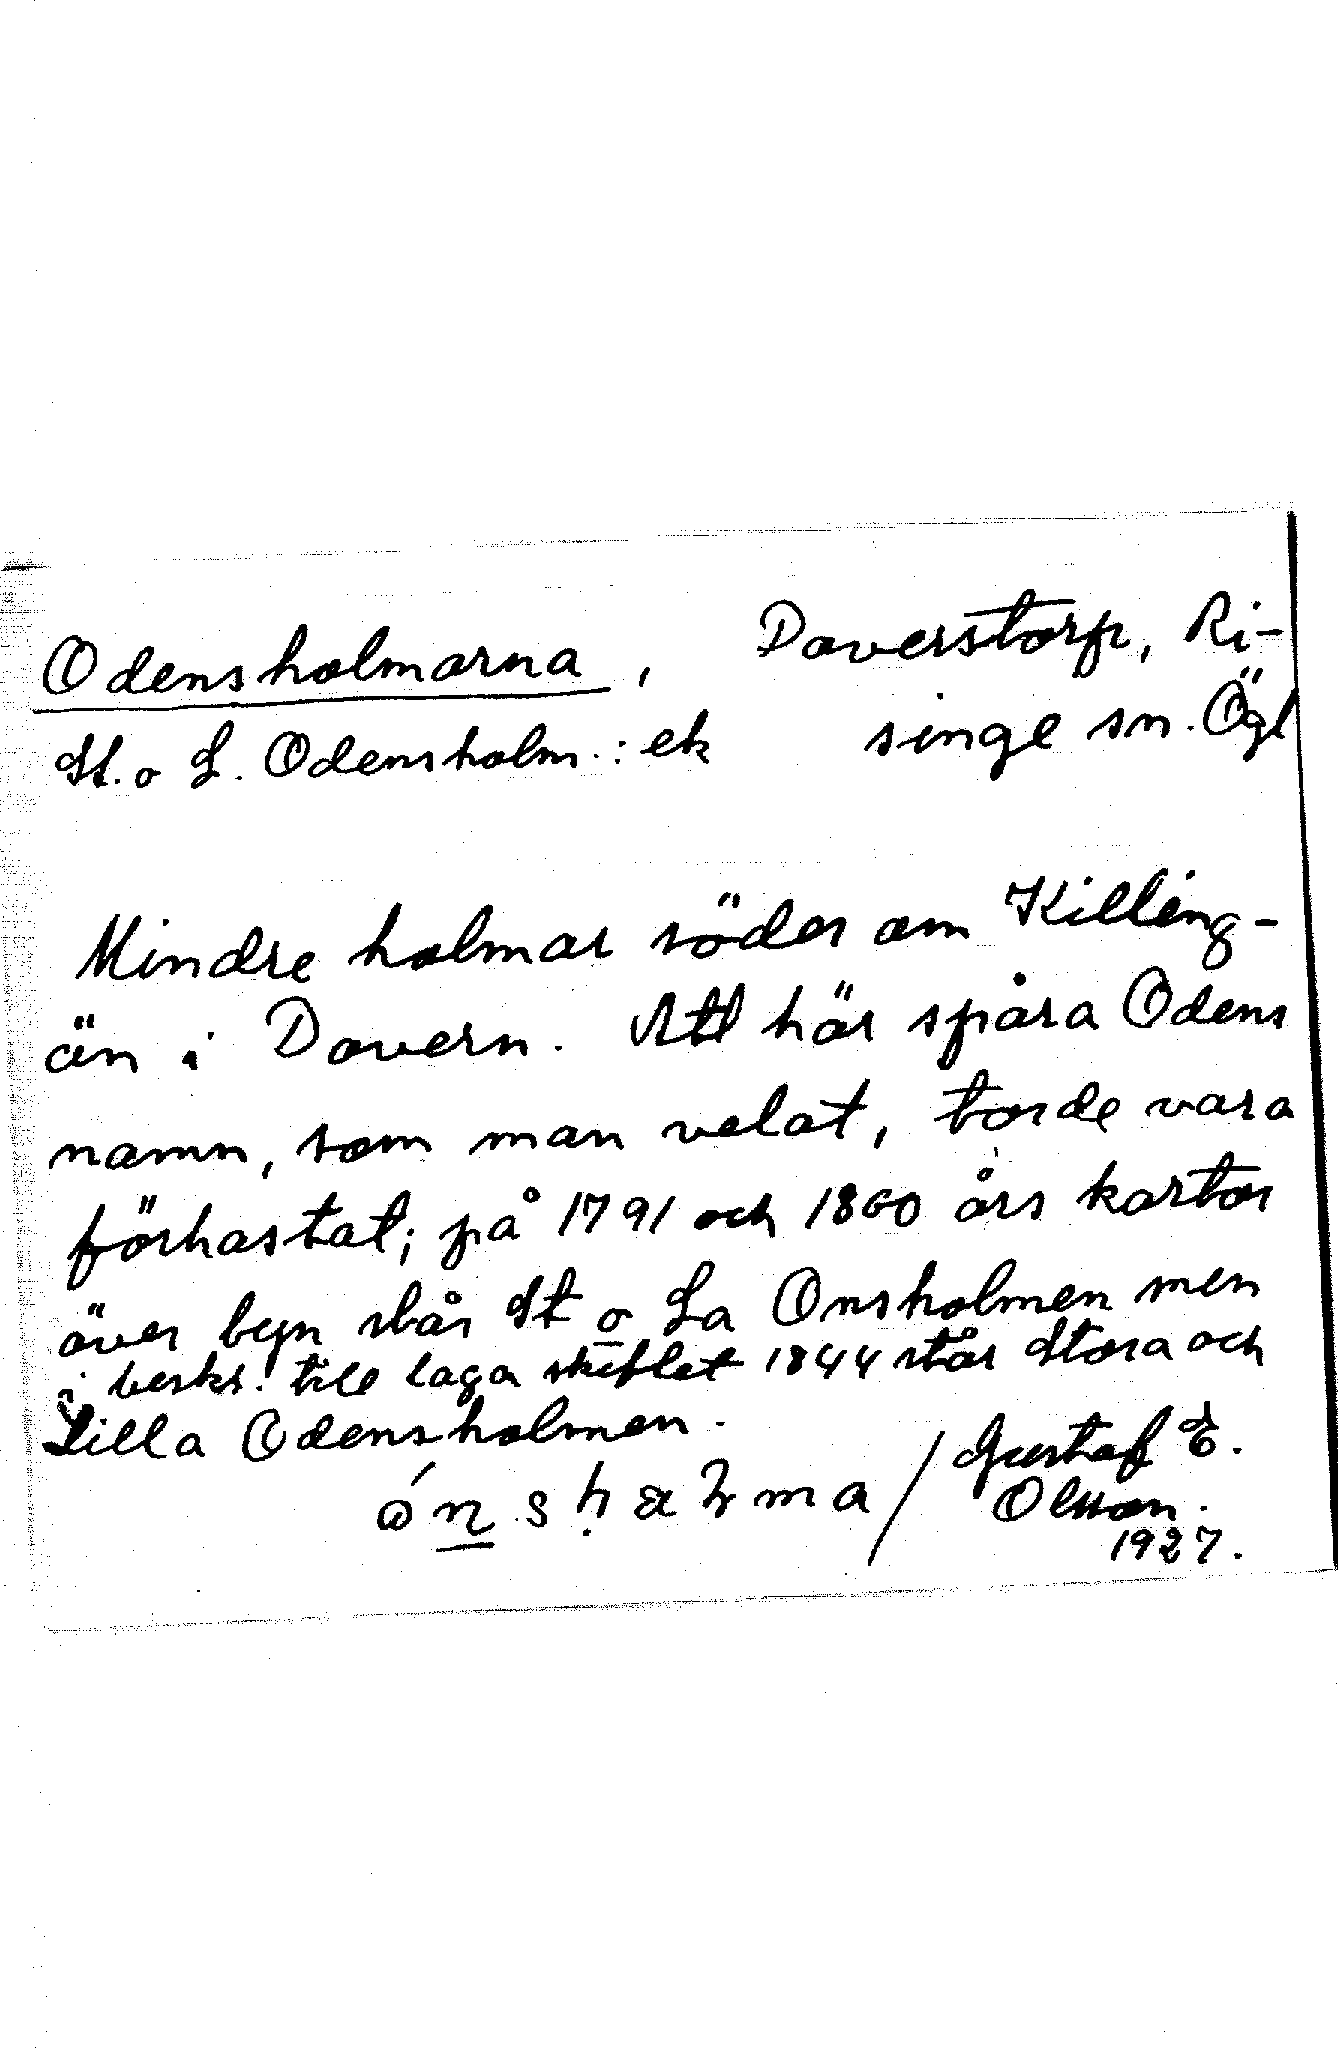 Odensholmarna, Daverstorp, Ri-
St. o L. Odensholm.: ek singe sn. Ögl
Mindre holmar söder om Killing-
än i Dovern. Att här spåra Odens
namn, som man velat, torde vara
förhastat; på 1791 och 1860 års kartor
över byn står St o La Onsholmen men
i beskr. till laga skiftet 1844 står Stora och
Lilla Odensholmen.
Gustaf E.
Olsson.
1927.